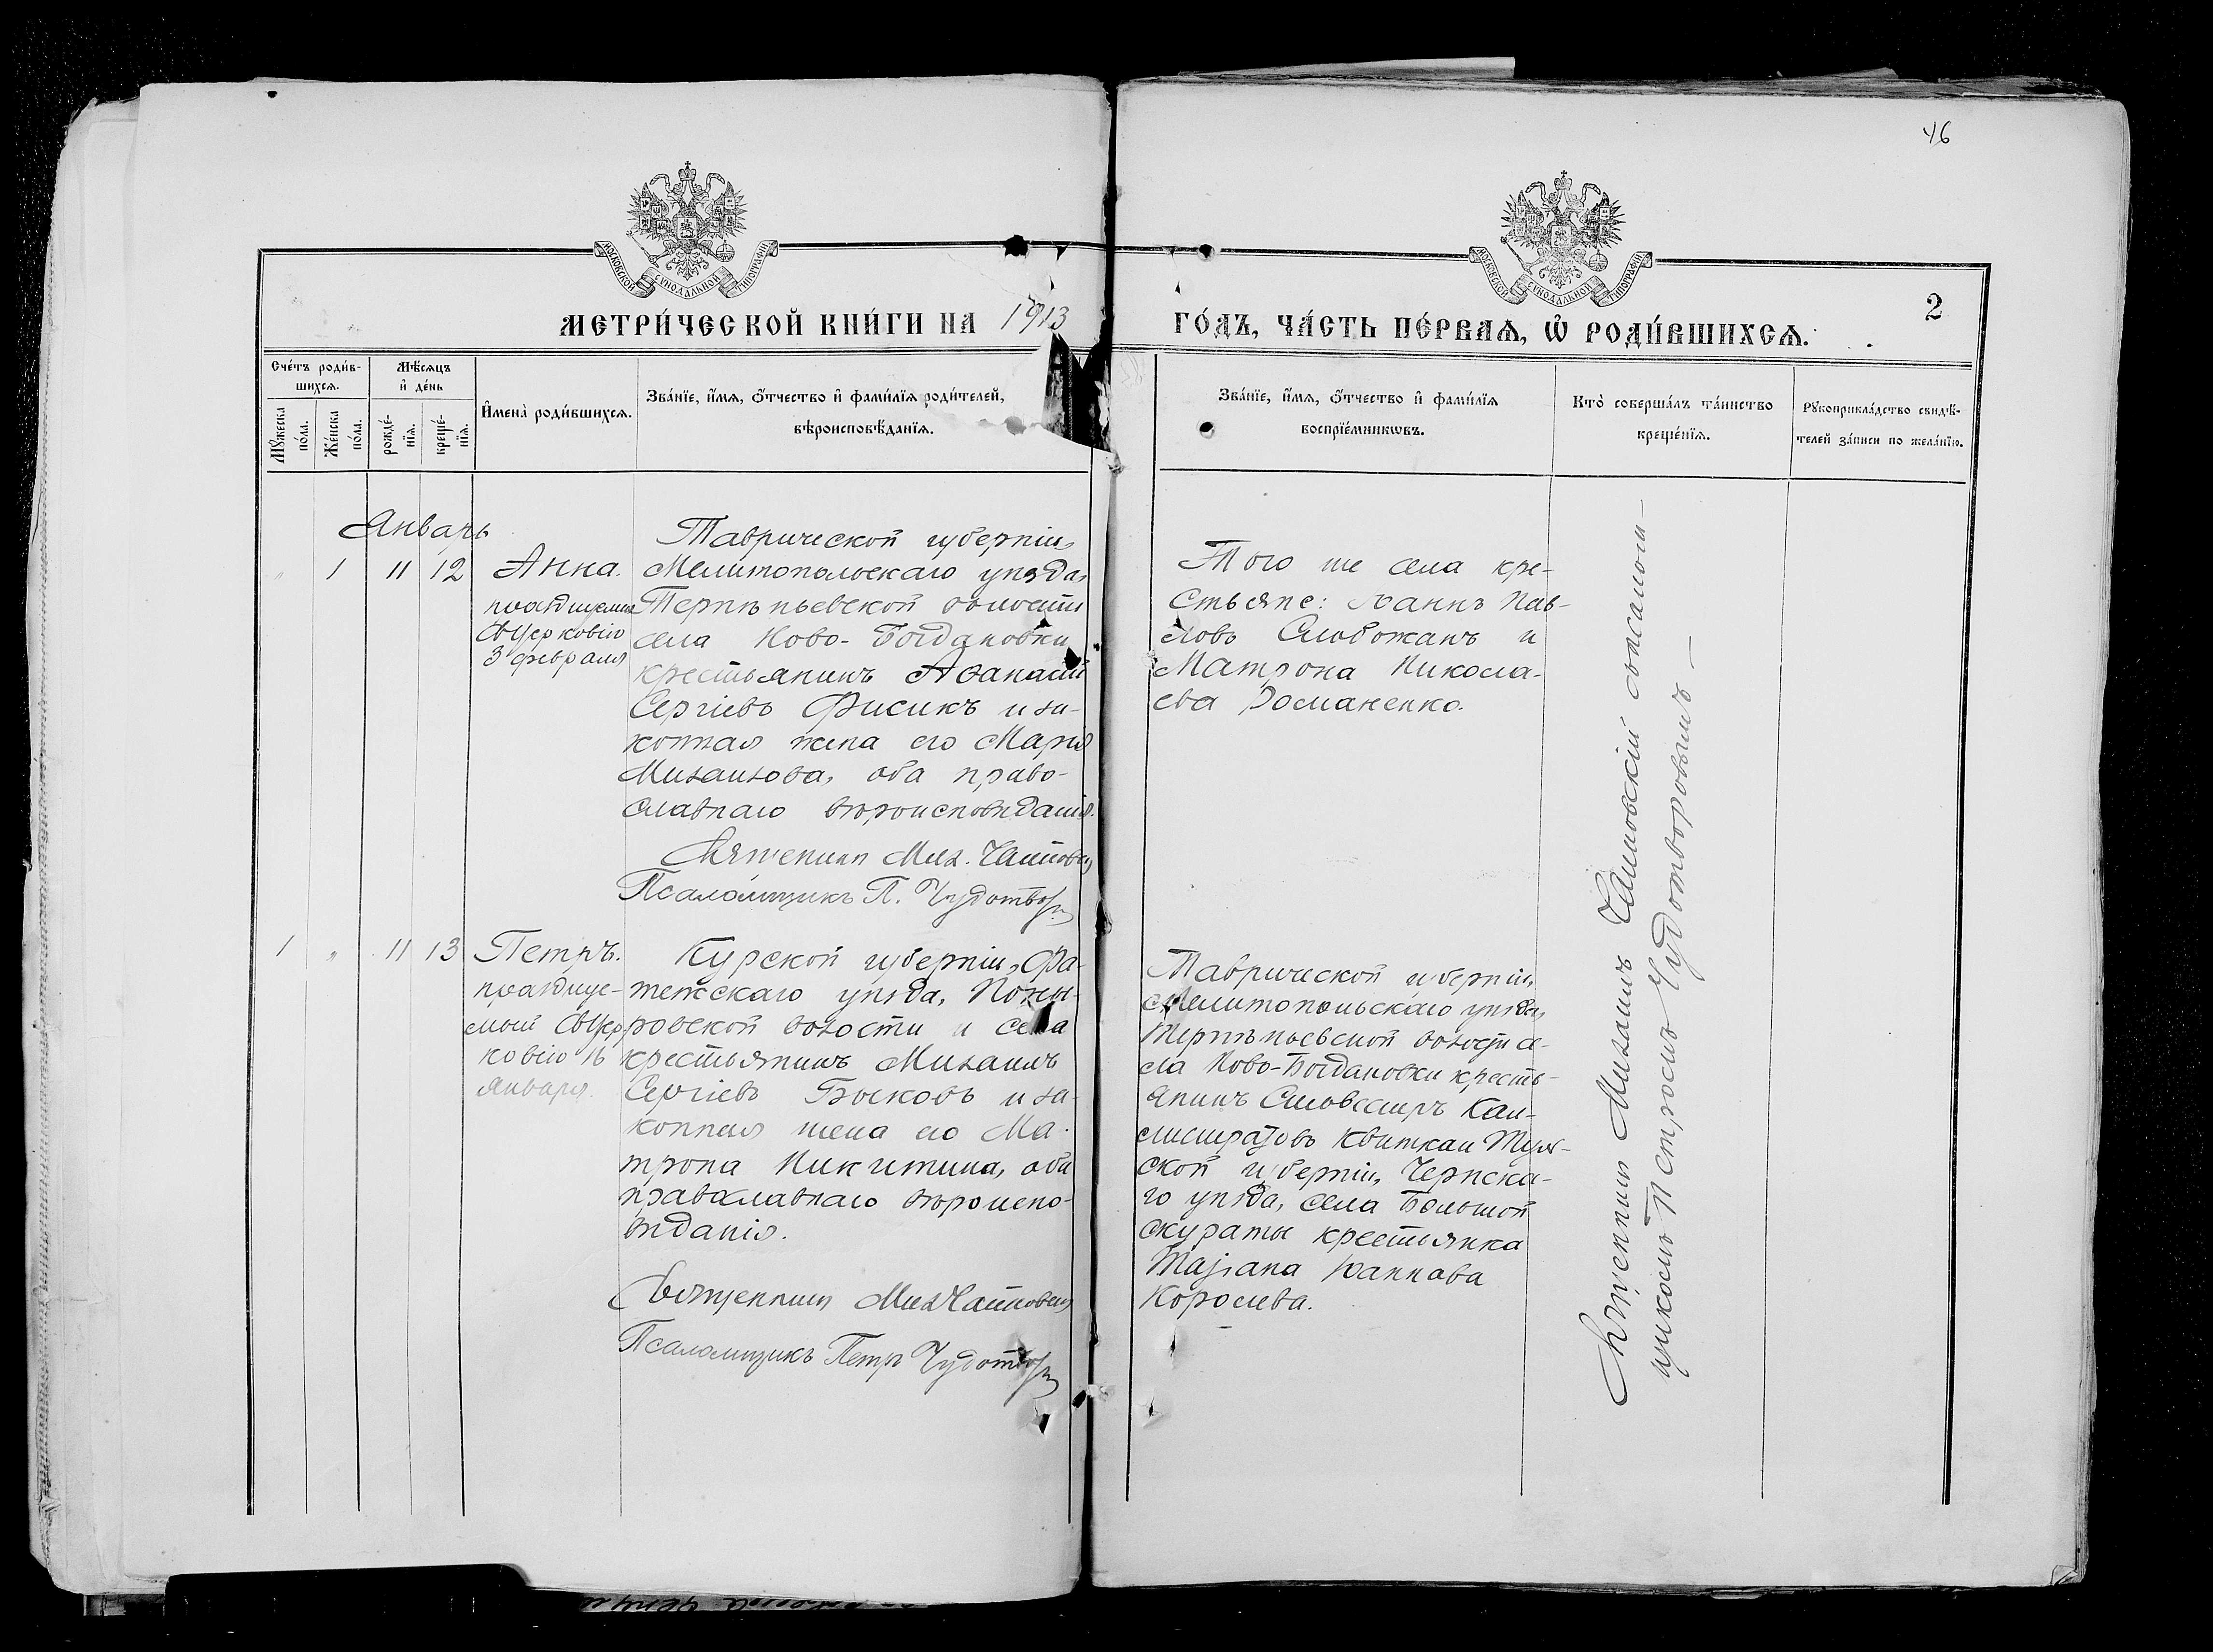 46
МОСКОВСКОЙ СѴНОДАЛЬНОЙ ТИПОГРАФІИ
МОСКОВСКОЙ СѴНОДАЛЬНОЙ ТИПОГРАФІИ
МЕТРИ́ЧЕСКОЙ КНИ́ГИ НА 1913
ГО́ДЪ, ЧА́СТЬ ПЕ́РВАѦ, Ѡ҆ РОДИ́ВШИХСѦ.
2
Сче́тъ роди́в-
шихсѧ.
Мꙋ́жеска
по́ла.
Же́нска
по́ла.
Мѣ́сѧцъ
и҆ де́нь
рожде́-
нїѧ.
креще́-
нїѧ.
И҆мена̀ роди́вшихсѧ.
Зва́нїе, и҆́мѧ, ѻ҆́тчество и҆ фами́лїѧ роди́телей,
вѣроисповѣ́данїѧ.
Зва́нїе, и҆́мѧ, ѻ҆́тчество и҆ фами́лїѧ
воспрїе́мникѡвъ.
Кто̀ соверша́лъ та́инство
креще́нїѧ.
Рꙋкоприкла́дство свидѣ́-
телей за́писи по жела́нїю.
Январь
" 1 11 12
Анна.
празднуемая
Св Церковію
3 февраля
Таврической губерніи,
Мелитопольскаго уѣзда,
Терпѣньевской волости
села Ново-Богдановки
крестьянинъ Аѳанасій
Сергіевъ Фисикъ и за-
конная жена его Марія
Михаилова, оба право-
славнаго вѣроисповѣданія.
Священник Мих. Чайковскій
Псаломщикъ П. Чудотвор
Того же села кре-
стьяне: Іоаннъ Пав-
ловъ Слобожанъ и
Матрона Никола-
ева Романенко.
1 " 11 13
Петръ.
празднуе-
мый Св Цер
ковію 16
января.
Курской губерніи, Фа-
тежскаго уѣзда, Поны-
ровской волости и села
крестьянинъ Михаилъ
Сергіевъ Быковъ и за-
конная жена его Ма-
трона Никитина, оба
православнаго вѣроиспо-
вѣданія.
Священник Мих Чайковскій
Псаломщикъ Петр Чудотвор
Таврической губерніи,
Мелитопольскаго уѣзда,
Терпѣньевской волости се-
ла Ново-Богдановки кресть-
янинъ Сильвестръ Кал-
листратовъ Квитка и Туль-
ской губерніи, Чернска-
го уѣзда, села Большой
Скураты крестьянка
Татіана Іоаннова
Королева.
Священник Михаилъ Чайковскій с псалом-
щикомъ Петромъ Чудотворовымъ —